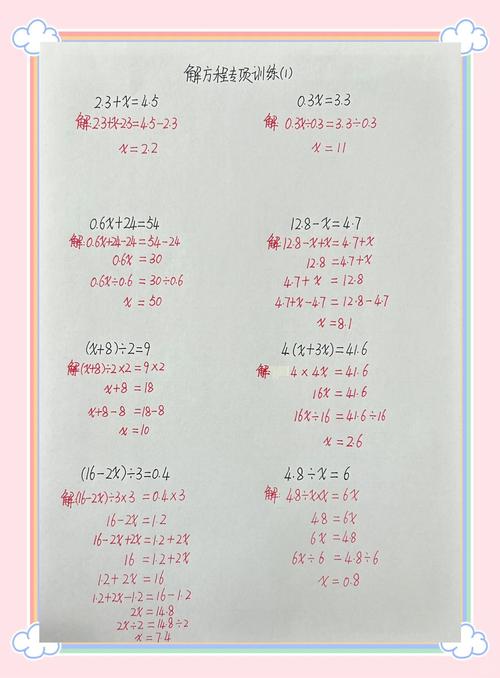 解方程专项训练(1)
2.3+x=4.5
解:2.3+x-2.3=4.5-2.3
x=2.2
0.3x=3.3
解 0.3x÷0.3=3.3÷0.3
x=11
0.6x+24=54
解:0.6x+24-24=54-24
0.6x=30
0.6x÷0.6=30÷0.6
x=50
12.8-x=4.7
解:12.8-x+x=4.7+x
12.8=4.7+x
4.7+x=12.8
4.7+x-4.7=12.8-4.7
x=8.1
(x+8)÷2=9
解(x+8)÷2×2=9×2
x+8=18
x+8-8=18-8
x=10
4(x+3x)=41.6
解 4×4x=41.6
16x=41.6
16x÷16=41.6÷16
x=2.6
(16-2x)÷3=0.4
解(16-2x)÷3×3=0.4×3
16-2x=1.2
16-2x+2x=1.2+2x
16=1.2+2x
1.2+2x=16
1.2+2x-1.2=16-1.2
2x=14.8
2x÷2=14.8÷2
x=7.4
4.8÷x=6
解:4.8÷x×x=6x
4.8=6x
6x=4.8
6x÷6=4.8÷6
x=0.8